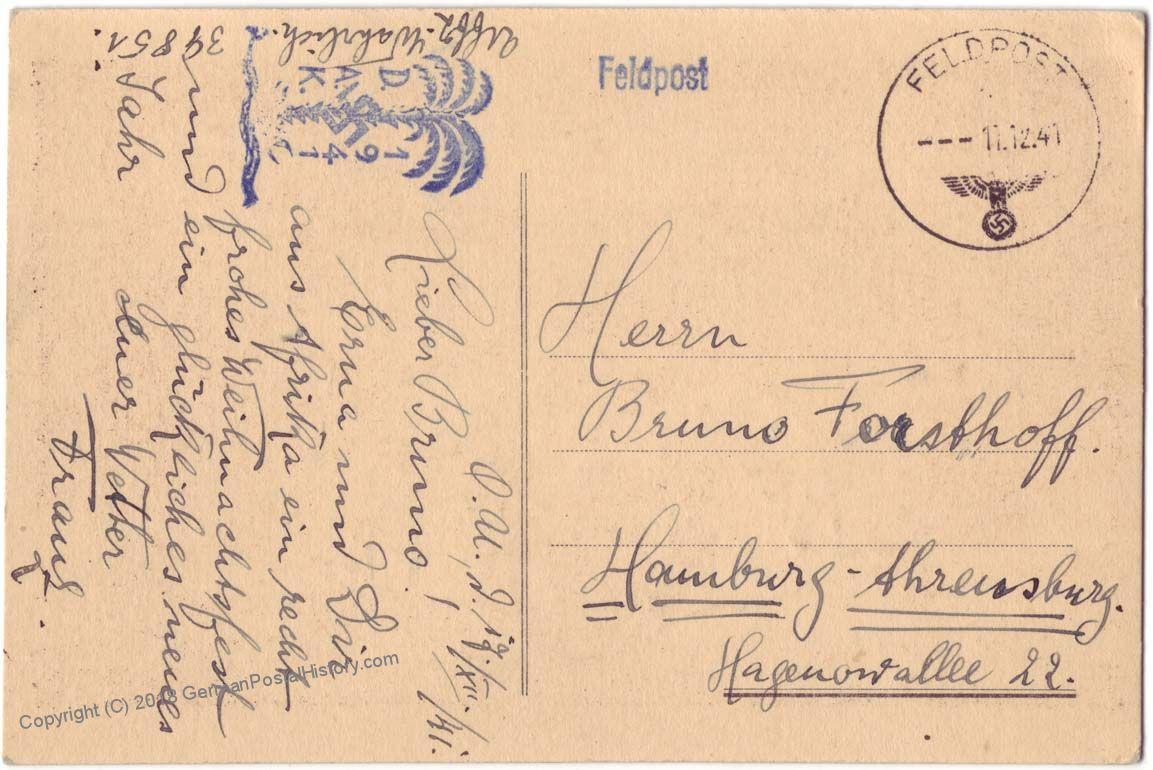 Feldpost
FELDPOST
--- 11.12.41
Herrn
Bruno Forsthoff.
Hamburg-Ahrensburg.
Hagenowallee 22.
Uffz. Wahrlich.
34851.
D. 1
A. 9
K. 4
1
O.U., d. /XII./41.
Lieber Bruno,
Erna und Dir
aus Afrika ein recht
frohes Weihnachtsfest
und ein glückliches neues
Jahr Euer Vetter
Franz.
Copyright (C) 2018 GermanPostalHistory.com